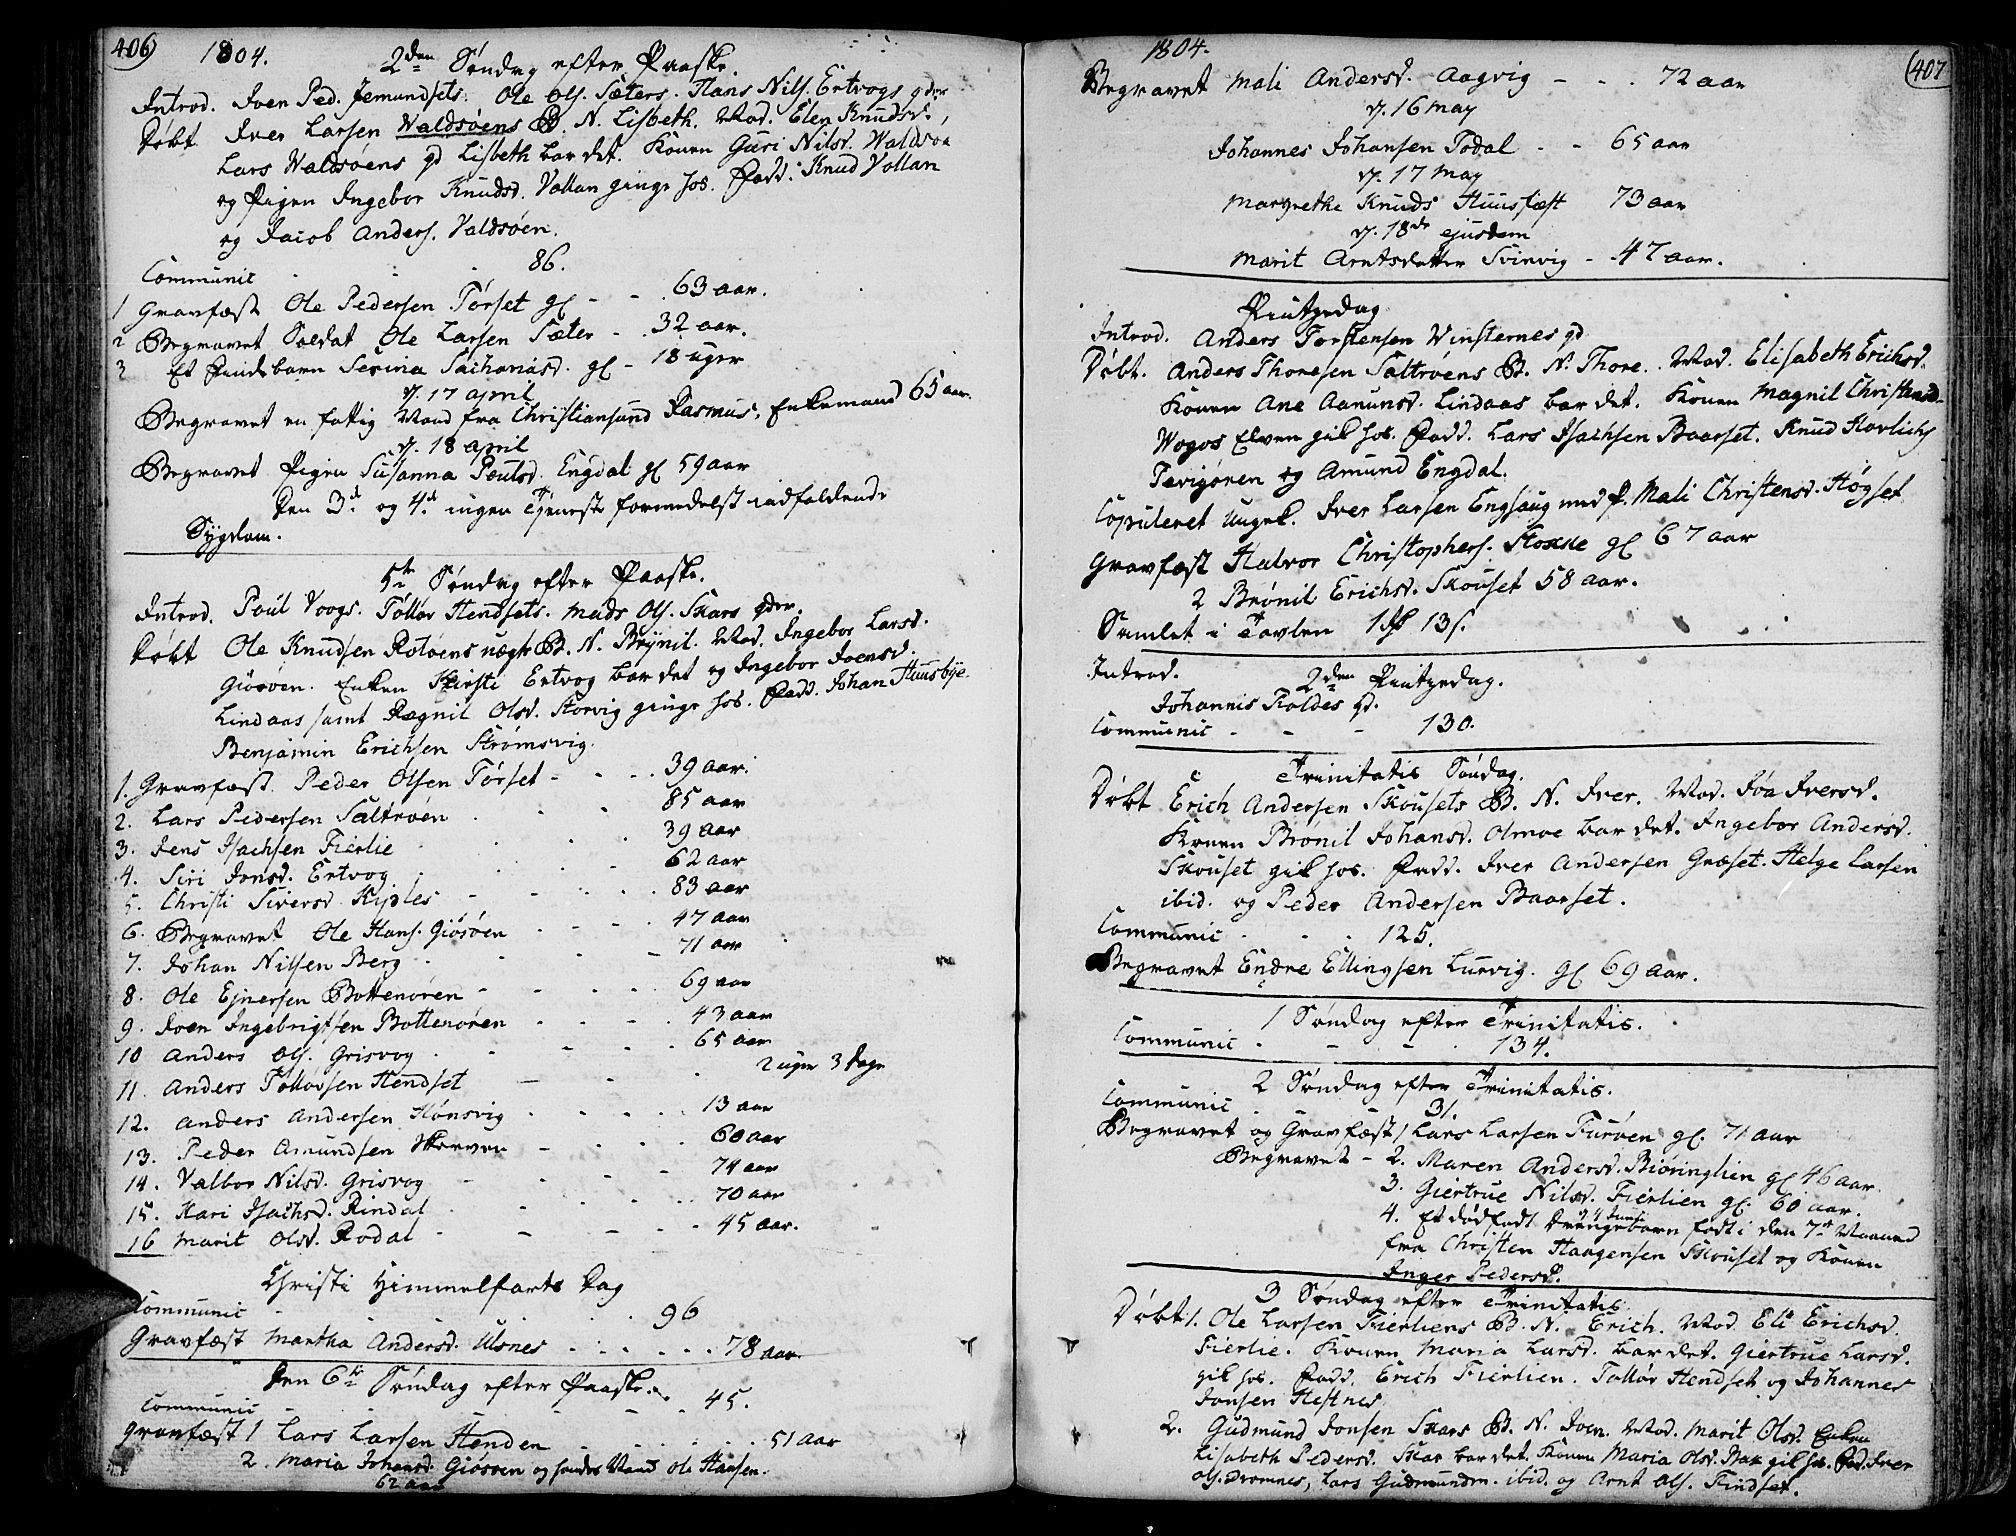 406 1804.
2den Søndag efter Paaske.
Introd. Joen Ped. Jemundsets. Ole Ols. Sæters. Hans Nils. Ertvogs qder
Døbt Iver Larsen Valdsøens B. N. Lisbeth. Mod. Elen Knudsd.
Lars Valdsøens qd Lisbeth bar det. Konen Guri Nilsd. Waldsøe
og Pigen Ingebor Knudsd. Vollan ginge hos. Fadd. Knud Vollan
og Jacob Anders. Valdsøen.
Communic - - - 86.
1 Gravfæst Ole Pedersen Tørset gl - - 63 aar.
2 Begravet Soldat Ole Larsen Sæter - 32 aar.
3 Et Pindsbarn Serina Sachariasd. gl - 18 uger
d. 17 april
Begravet en fattig Mand fra Christiansund Rasmus, Enkemand 65 aar.
d. 18 april
Begravet Pigen Susanna Poulsd. Engdal gl 59 aar
Den 3d. og 4d. ingen Tjeneste formedelst indfaldende
Sygdom.
5te Søndag efter Paaske.
Introd. Poul Voogs. Tolløv Hendsets. Mads Ols. Skars qder.
Døbt Ole Knudsen Roløens uægte B. N. Brynil. Mod. Ingebor Larsd.
Giøsøen. Enken Kirsti Ertvog bar det og Ingebor Joensd.
Lindaas samt Ragnil Olsd. Korvig ginge hos. Fadd. Johan Huusbye.
Benjamin Erichsen Strømsvig.
1. Gravfæst. Peder Olsen Tørset - - - 39 aar.
2. Lars Pedersen Saltrøen - - 85 aar
3. Jens Isachsen Fierlie - - 39 aar
4. Siri Jonsd. Ertvog - - 62 aar
5. Christi Siversd. Kiples - - 83 aar
6. Begravet Ole Hans. Giøsøen - - - 47 aar
7. Johan Nilsen Berg - - - 71 aar
8. Ole Ejnersen Bottenøren - - - 69 aar
9. Joen Ingebrigtsen Bottenøren - - - 43 aar
10 Anders Ols. Grisvog - - - 65 aar
11. Anders Tolløvsen Hendset - - 2 uger 3 Dage
12. Anders Andersen Hønsvig - - - 13 aar
13. Peder Amundsen Skorven - - - 60 aar
14. Valbor Nilsd. Grisvog - - - 74 aar
15. Kari Isachsd. Rindal - - - 70 aar
16 Marit Olsd. Rodal - - - 45 aar.
Christi Himmelfarts Dag
Communic - - - 96
Gravfæst Martha Andersd. Ulsnes - - - 78 aar
Den 6te Søndag efter Paaske.
Communic - - - 45.
Gravfæst 1 Lars Larsen Henden - - - 51 aar
2. Maria Johansd. Giøsøen og hendes Mand Ole Hansen.
62 aar
1804. 407
Begravet Mali Andersd. Aagvig - - - 72 aar
d. 16 May
Johannes Johansen Todal - - 65 aar
d. 17 May
Margrethe Knuds Huusfæst 73 aar
d. 18de ejusdem
Marit Arntsdatter Svinvig - - 47 aar.
Pintzedag
Introd. Anders Torstensen Winsternes qd
Døbt. Anders Thoresen Saltrøens B. N. Thore. Mod. Elisabeth Erichsd.
Konen Ane Aanunsd. Lindaas bar det. Konen Magnil Christensd.
Wogos Elven gik hos. Fadd. Lars Isachsen Baarset. Knud Havlichs
Tevigøren og Amund Engdal.
Copuleret Ungk. Iver Larsen Engsaug med P. Mali Christensd. Høgset
Gravfæst Halvor Christophers. Stokke gl 67 aar
2 Brønil Erichsd. Skouset 58 aar.
Samlet i Tavlen 1 13s.
Introd. 2den Pintzedag.
Johannis Roldes qd.
Communic - - - 130.
Trinitatis Søndag.
Døbt Erich Andersen Skousets B. N. Iver. Mod. Joa Iversd.
Konen Brønil Johansd. Olmoe bar det. Ingebor Andersd.
Skouset gik hos. Fadd. Iver Andersen Græset. Helge Larsen
ibid. og Peder Andersen Baarset.
Communic - - - 125.
Begravet Endre Ellingsen Lurvig. gl 69 aar.
1 Søndag efter Trinitatis.
Communic - - - 134.
2 Søndag efter Trinitatis.
Communic - - 31.
Begravet og Gravfæst 1 Lars Larsen Furøen gl. 71 aar
Begravet - 2. Maren Andersd. Biøringlien gl 46 aar.
3. Giertrue Nilsd. Fierlien gl. 60 aar.
4. Et dødfødt Drengebarn født i den 7de Maaned
fra Christen Haagensen Skouset og Konen
Inger Pedersd.
3 Søndag efter Trinitatis.
Døbt 1. Ole Larsen Fierliens B. N. Erich. Mod. Eli Erichsd.
Fierlie. Konen Maria Larsd. bar det. Giertrue Larsd.
gik hos. Fadd. Erich Fierlien. Tolløv Hendset og Johannes
Jonsen Hestnes
2. Gudmund Jonsen Skars B. N. Joen. Mod. Marit Olsd. Enken
Lisabeth Pedersd. Skar bar det. Konen Maria Olsd. Bak gik hos. Fad. Iver
Ols. Dromnes, Lars Gudmundsn. ibid. og Arnt Ols. Findset.